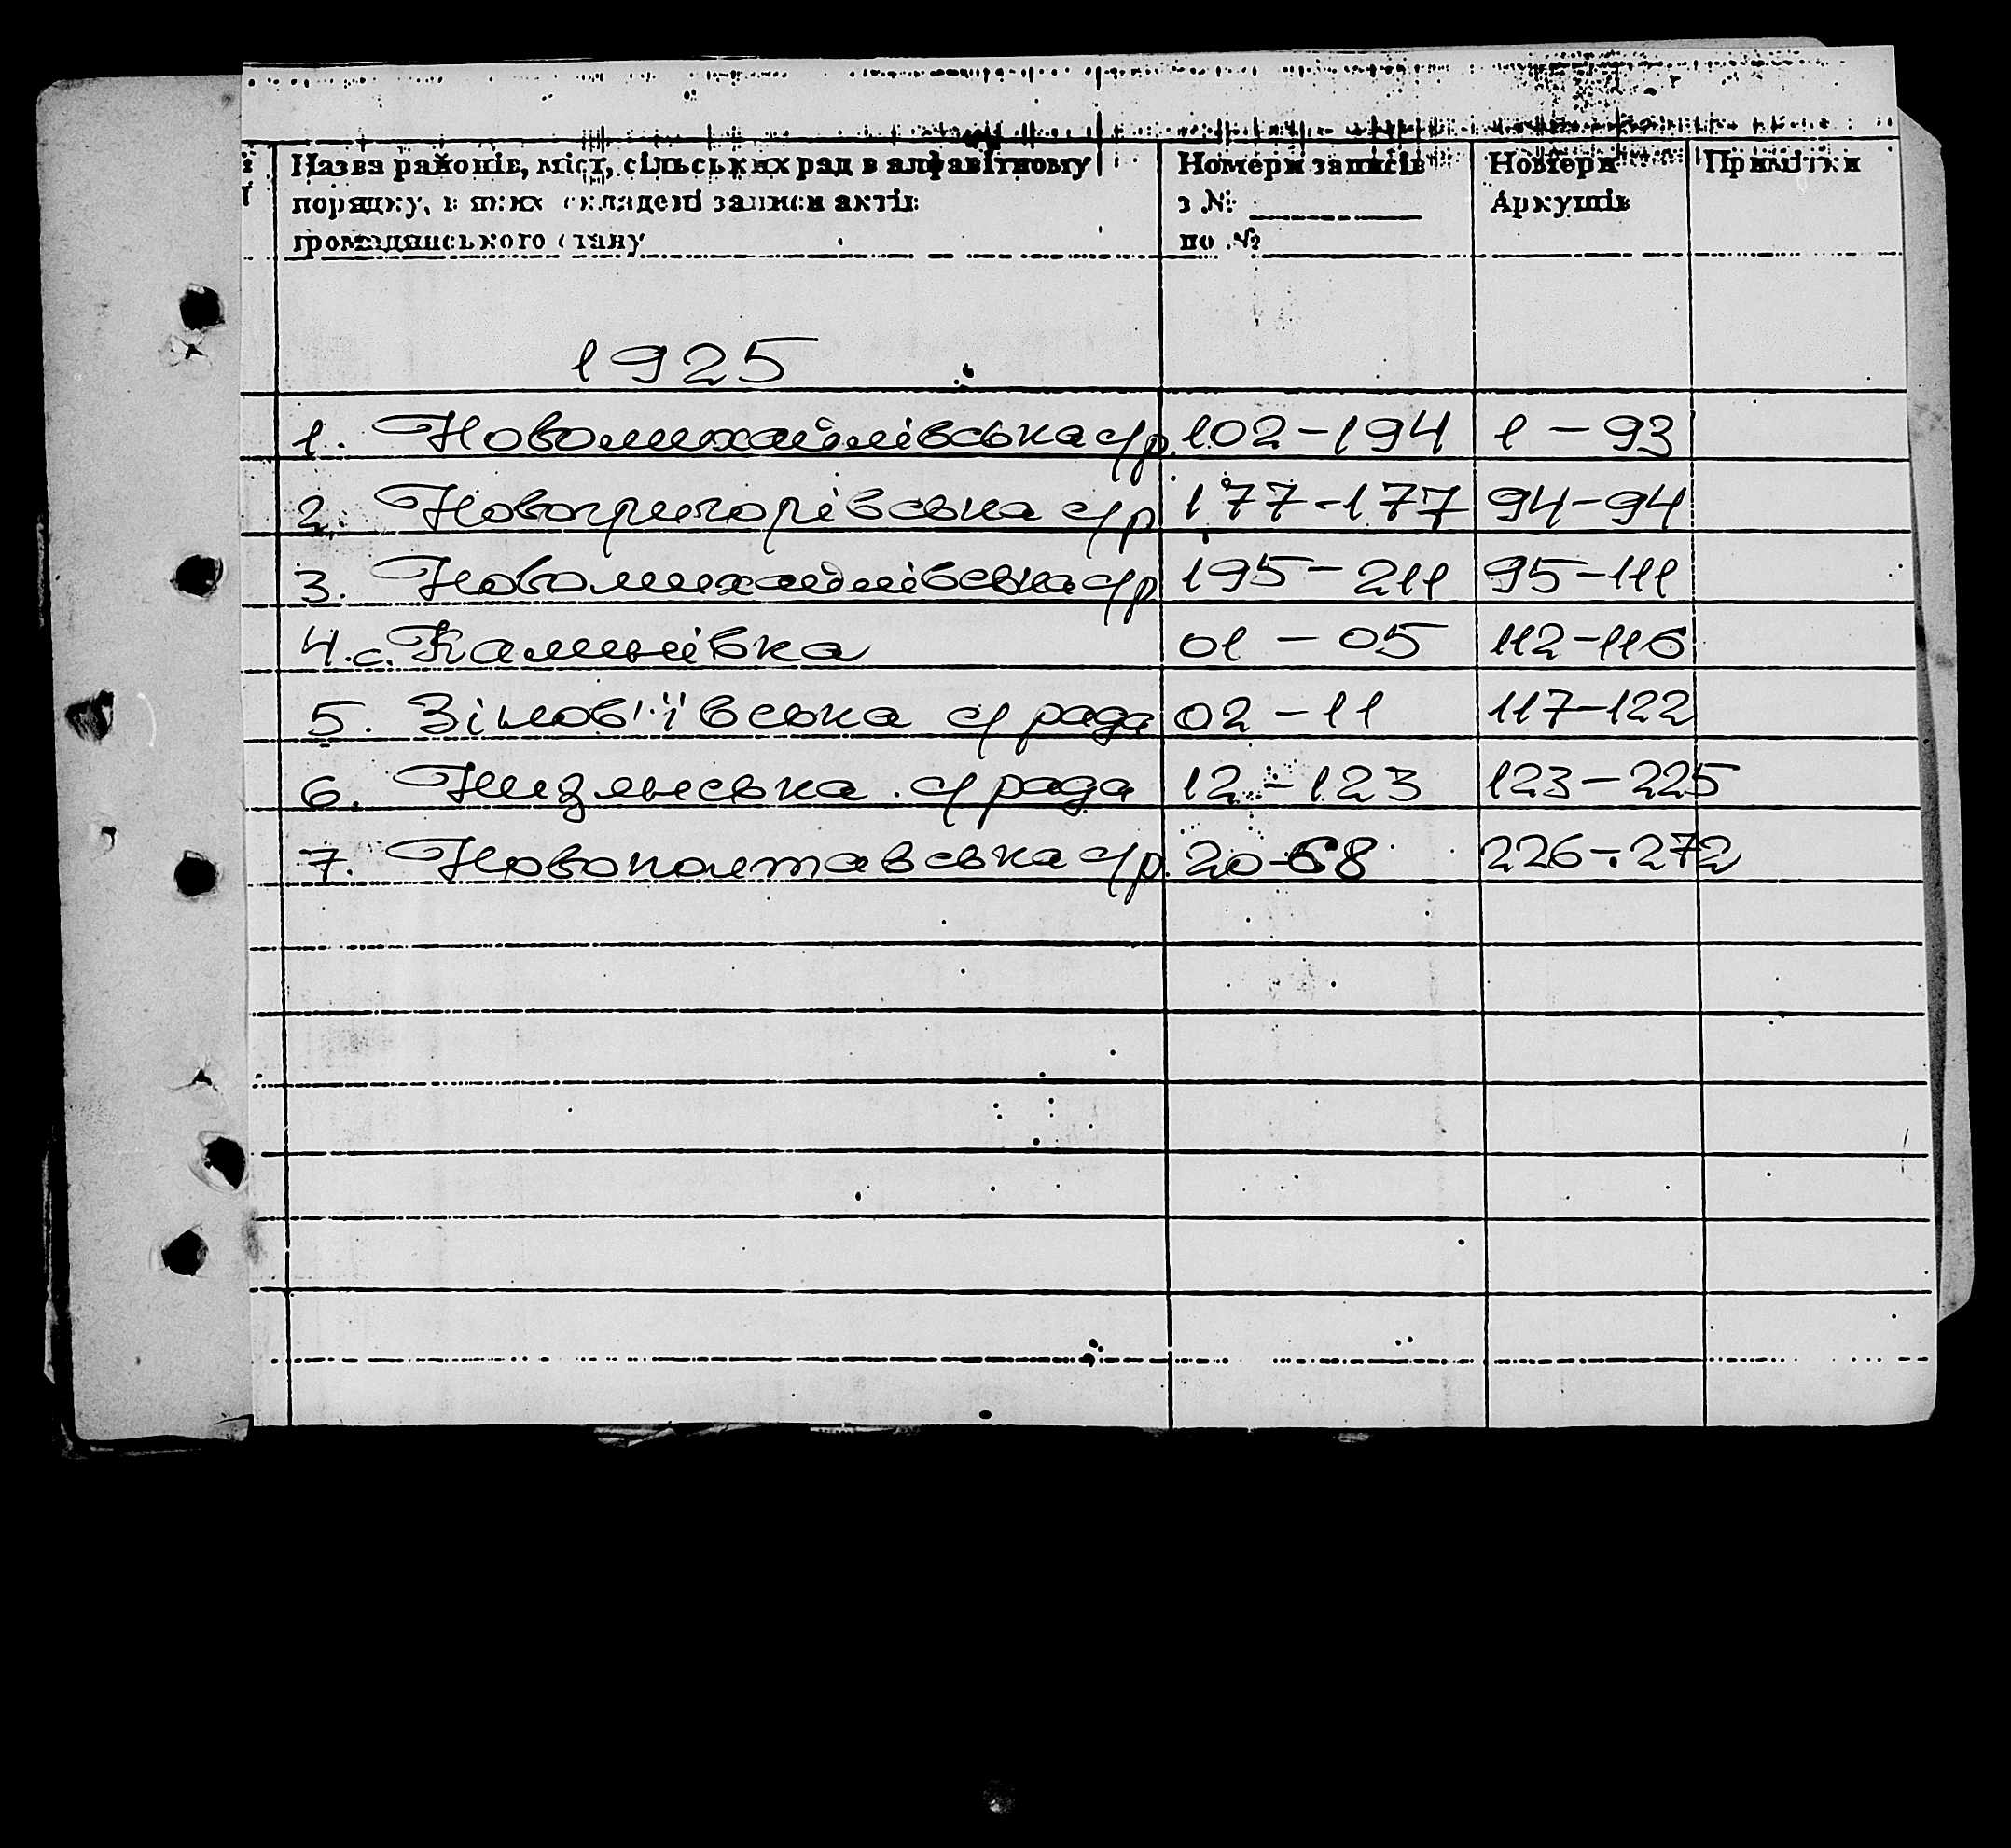 Назва районів, міст, сільських рад в алфавітному Номери записів Номери Примітки
порядку, в яких складені записи актів з № Аркушів
громадянського стану по №
1925
1. Новомихайлівська с/р. 102-194 1-93
2. Новогригорівська с/р 177-177 94-94
3. Новомихайлівська с/р 195-211 95-111
4. с. 01-05 112-116
5. с/рада 02-11 117-122
6. с/рада 12-123 123-225
7. Новополтавська с/р. 20-68 226-272